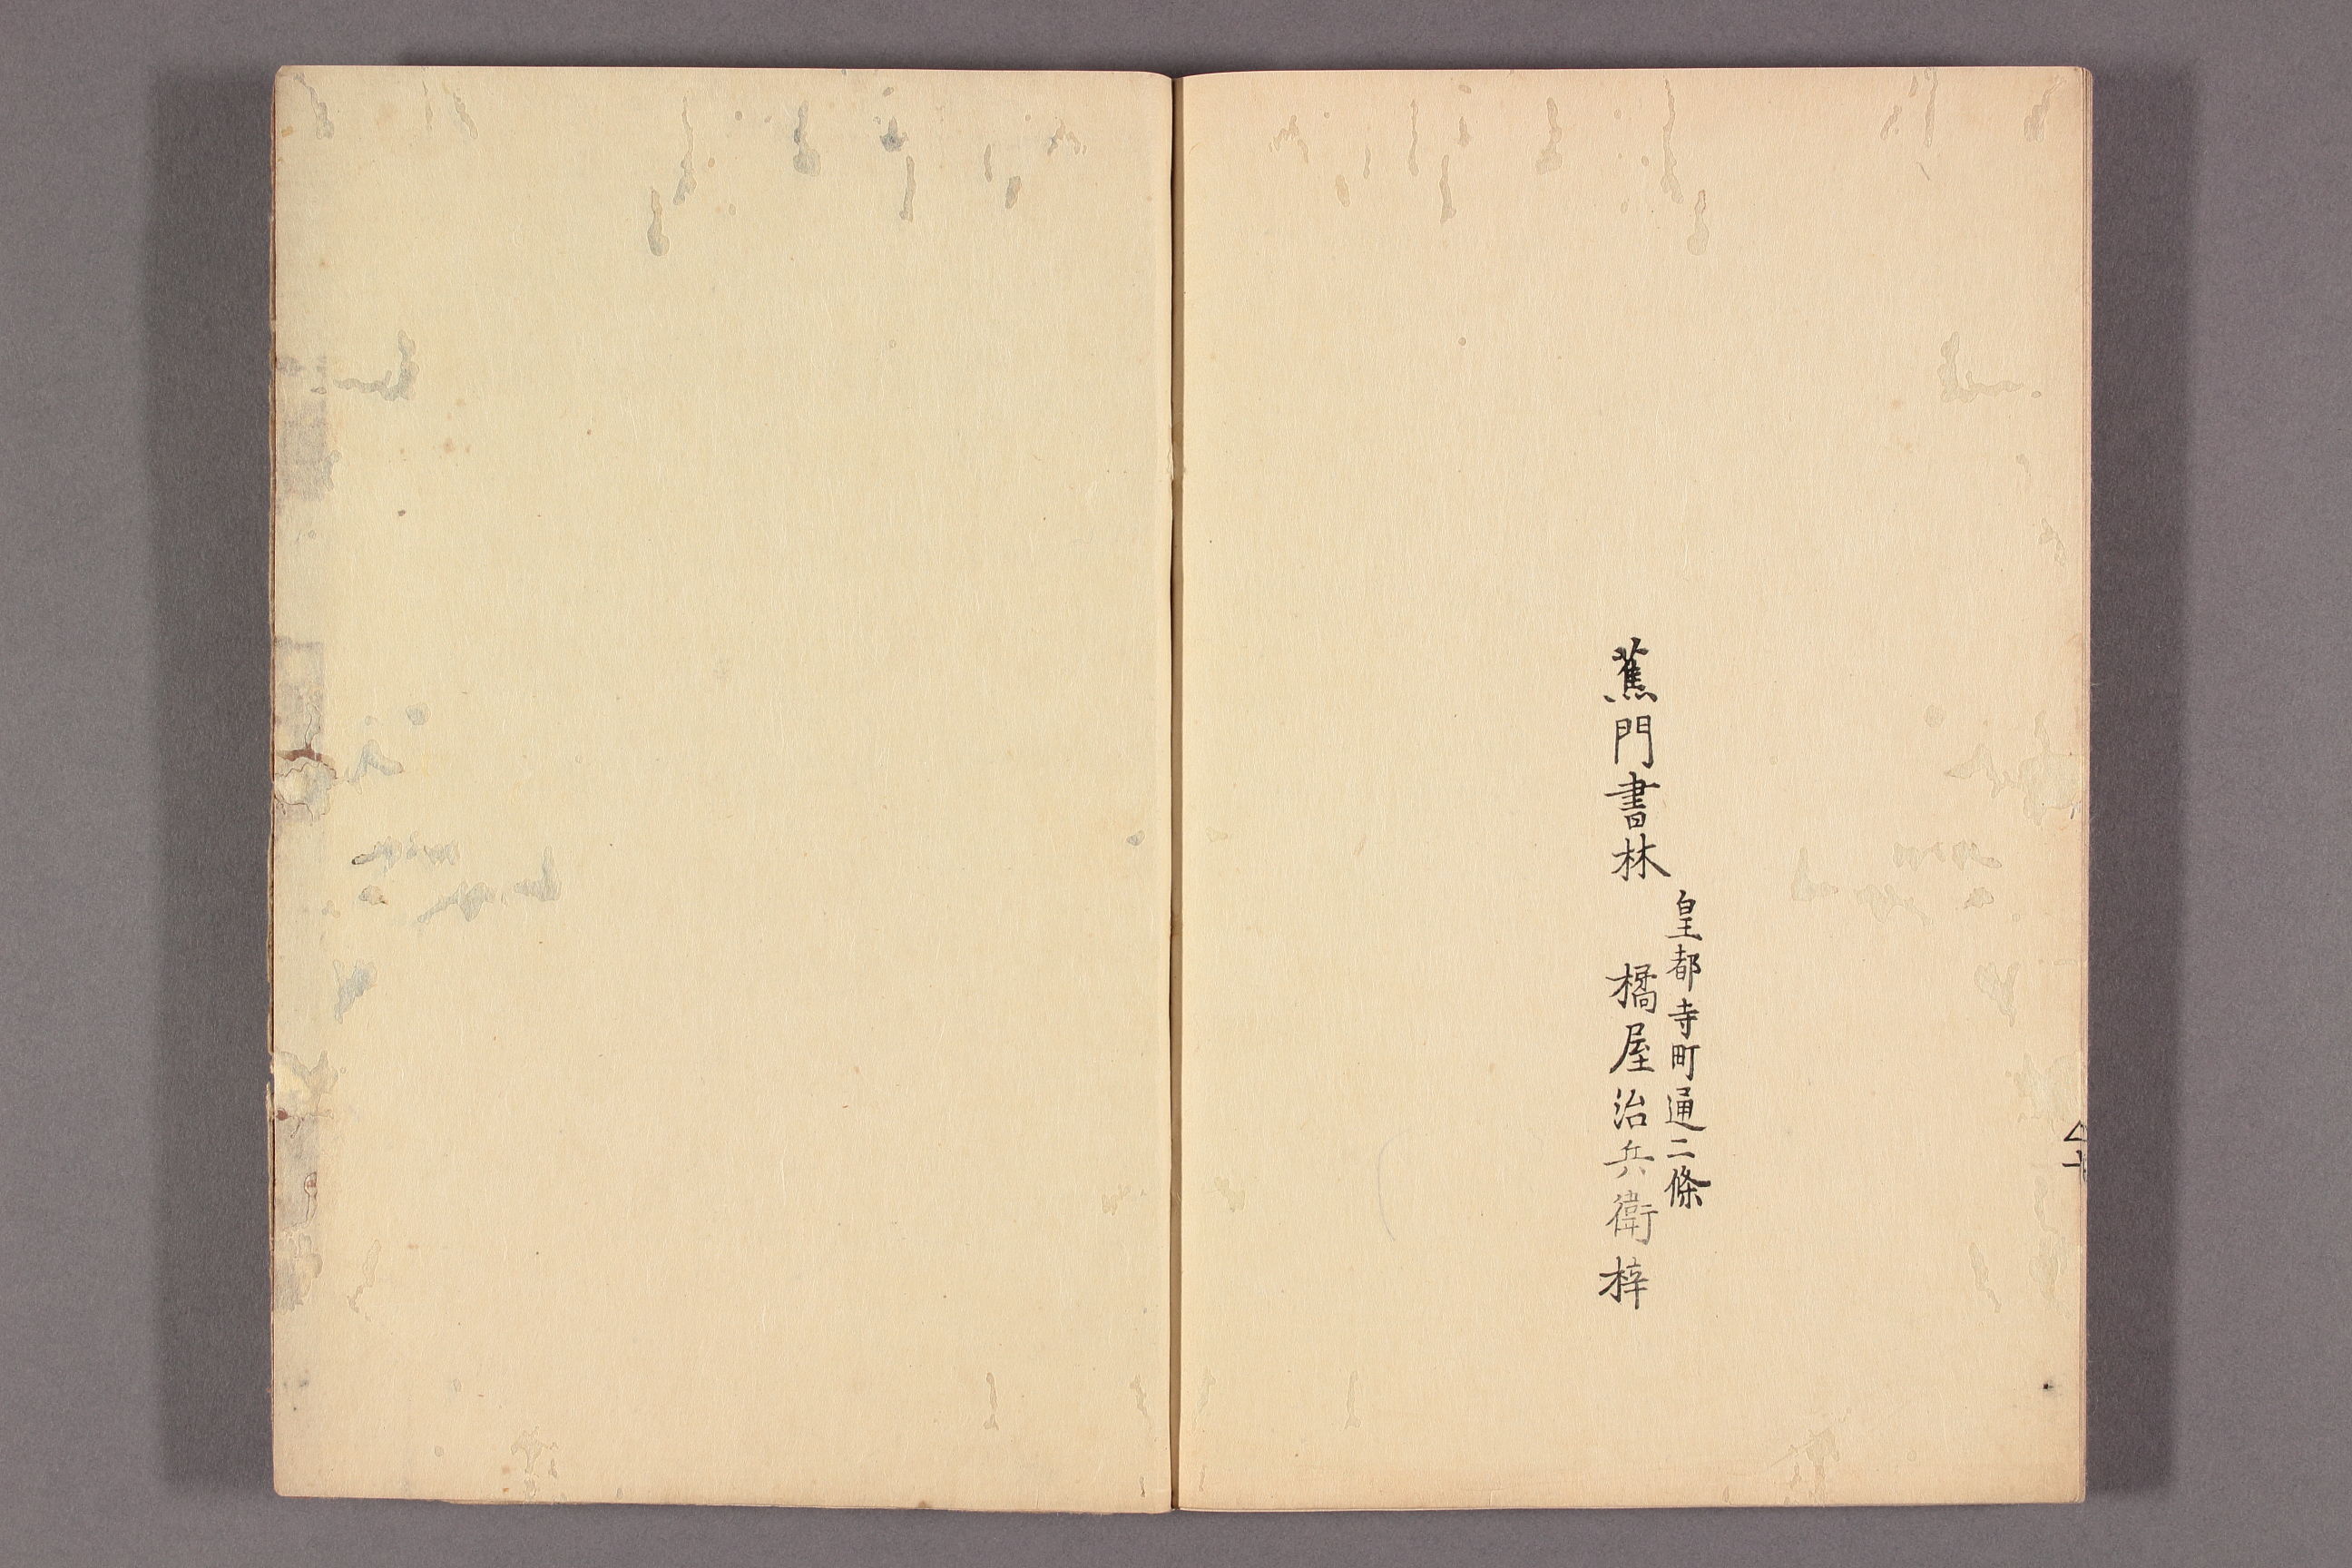 皇都寺町通二條
蕉門書林
橘屋治兵衛梓